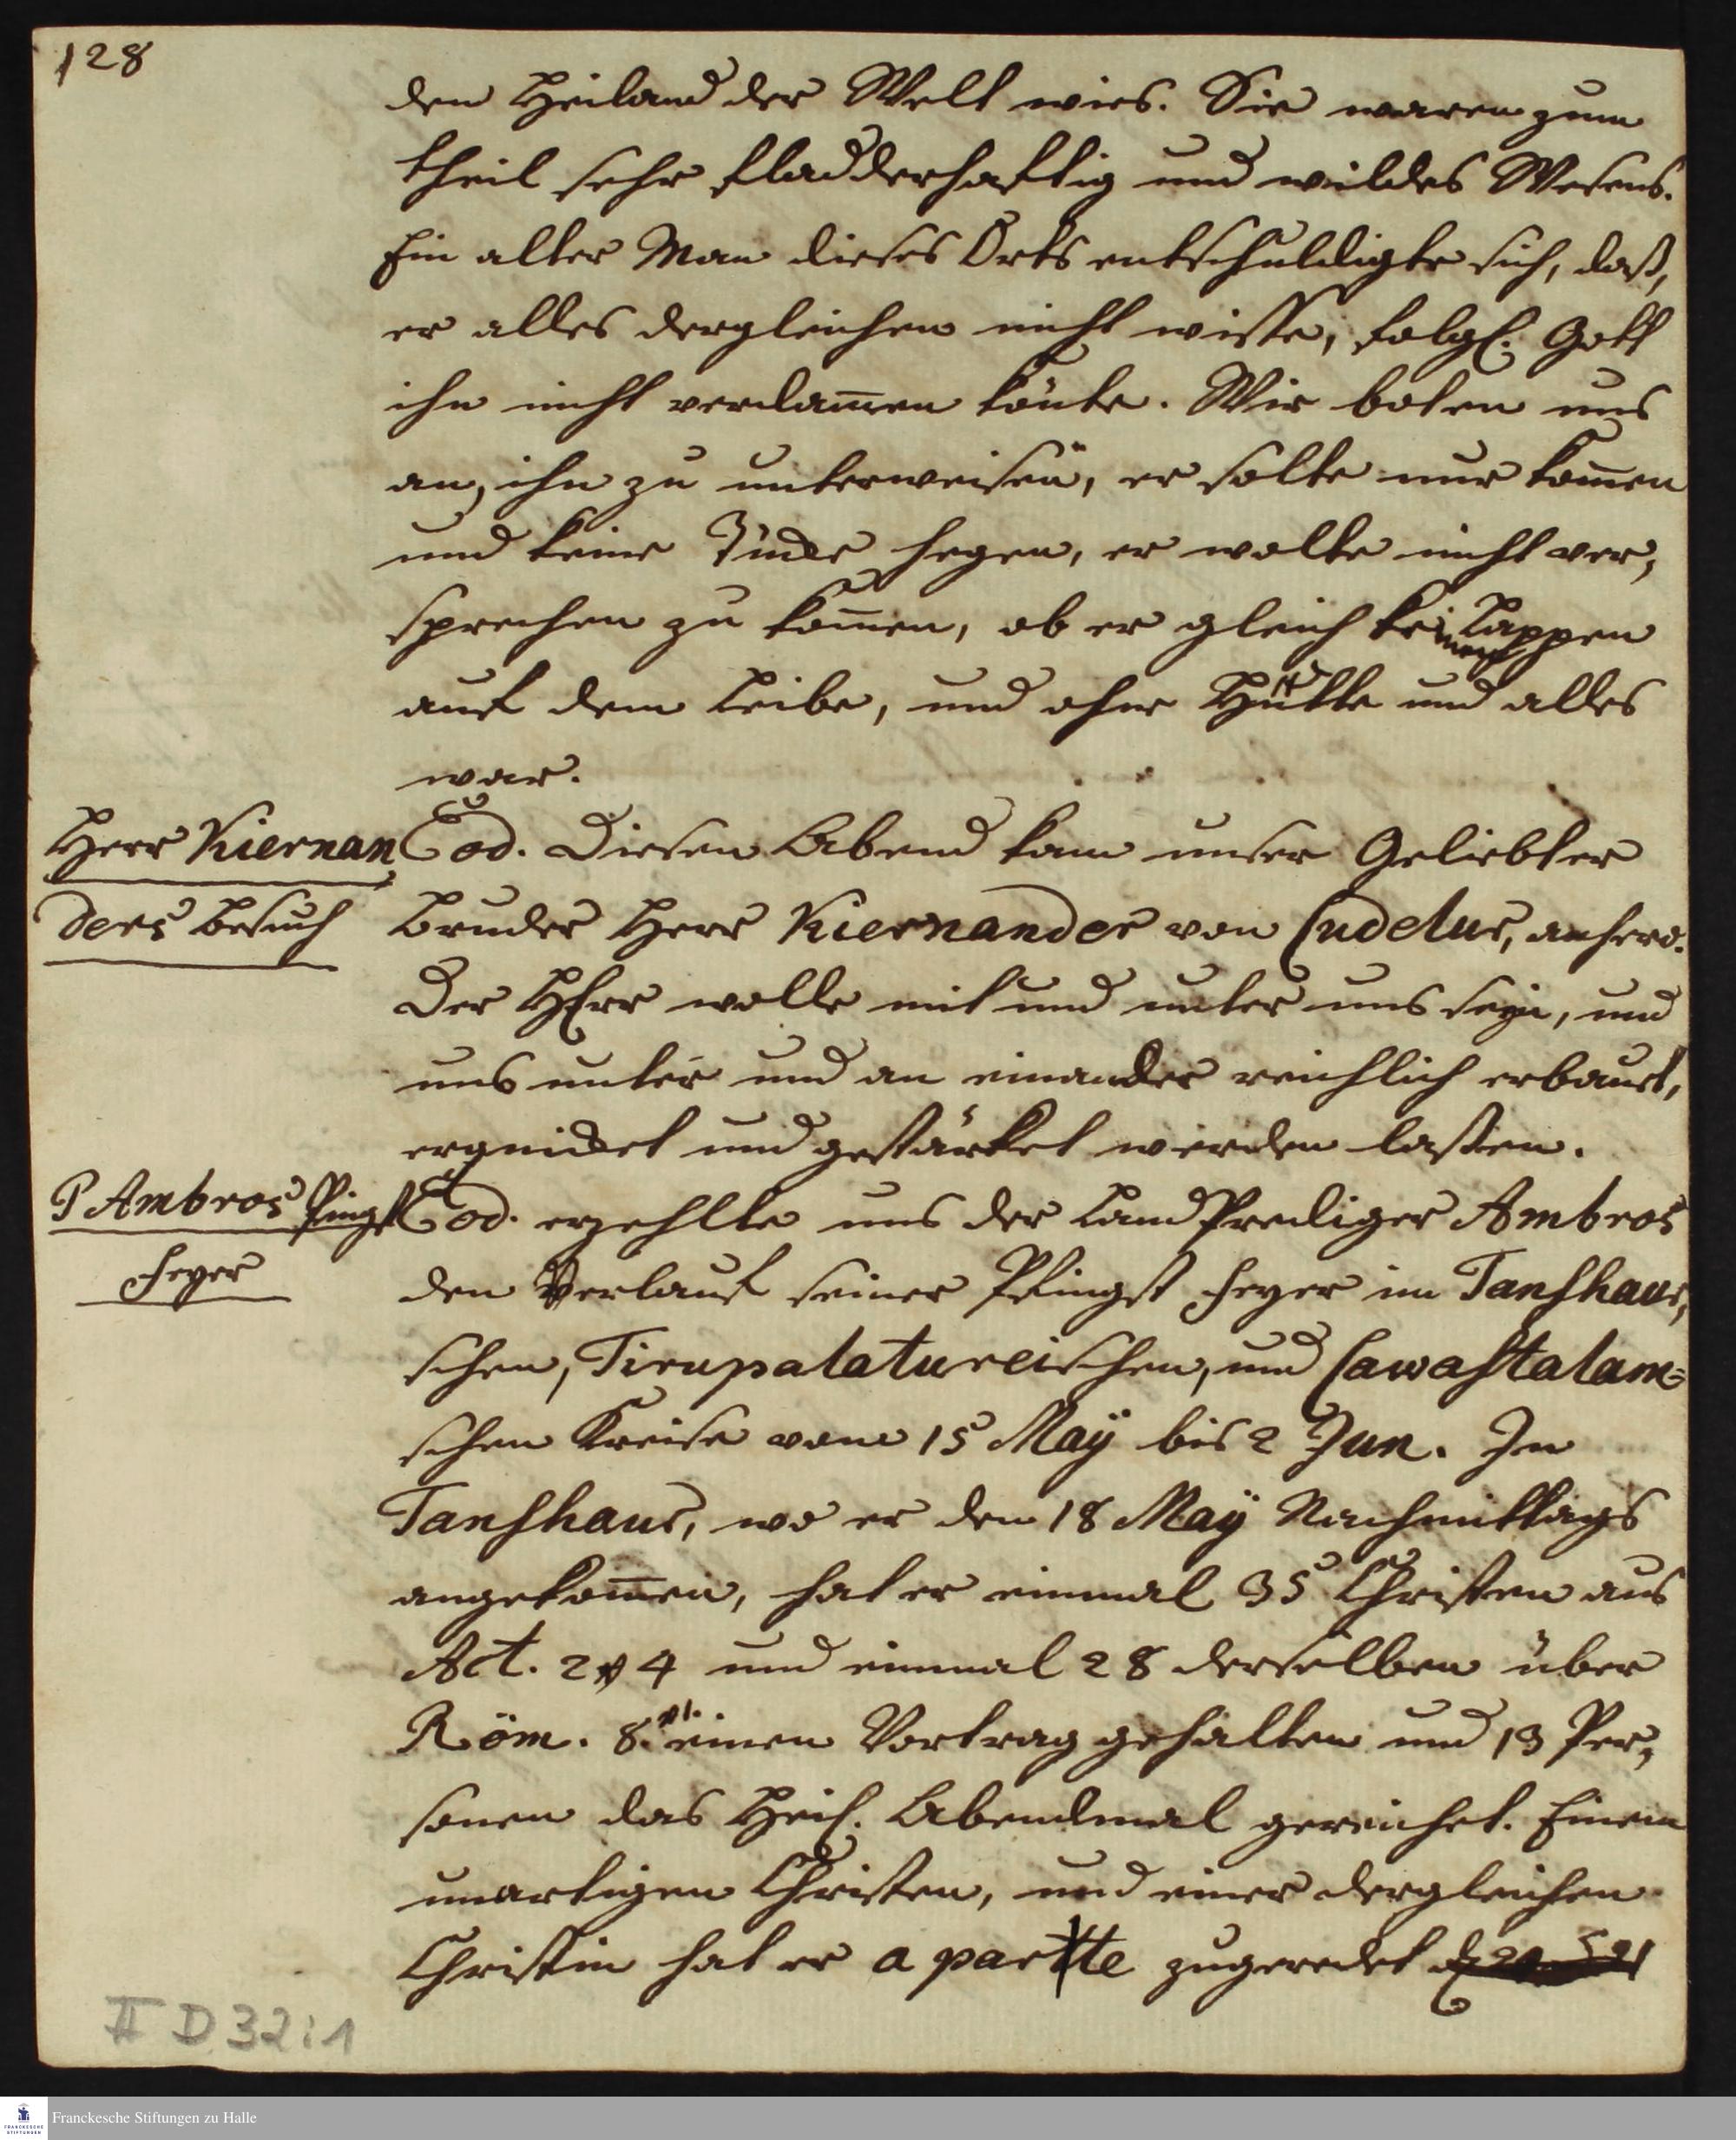 128
den Heiland der Welt wies. Sie waren zum
theil sehr fladderhaftig und wildes Wesens.
Ein alter Man dieses Orts entschuldigte sich, daß,
er alles dergleichen nicht wisse, folgl. Gott
ihn nicht verdam̄en könte. Wir boten uns
an, ihn zu unterweisen, er solte nur kom̄en
und keine hegen, er wolte nicht ver,
sprechen zu kom̄en, ob er gleich keinen Lappen
auf dem Leibe, und ohne Hütte und alles
war.
Herr Kiernan
ders Besuch
Eod. Diesen Abend kam unser Geliebter
Bruder Herr Kiernander von Cudelur, anhero.
Der HErr wolle mit und unter uns seyn, und
uns unter und an einander reichlich erbauet,
erquicket und gestärket werden laßen.
P Ambros Pfingst
Feyer
Eod. erzehlte uns der Land Prediger Ambros
den Verlauf seiner Pfingst Feyer im Tanshaur,
schen, Tirupalatureischen, und Cawastalam=
schen Kreise vom 15 May bis 2 Jun. In
Tanshaur, wo er den 18 May Nachmittags
angekom̄en, hat er einmal 35 Christen aus
Act. 2, 4 und einmal 28 derselben über
Röm. 8, 1. einen Vortrag gehalten und 13 Per,
sonen das Heil. Abendmal gereichet. Einem
unartigen Christen, und einer dergleichen
Christin hat er a parte zugeredet
II D 32:1
Franckesche Stiftungen zu Halle
FRANCKESCHE
STIFTUNGEN